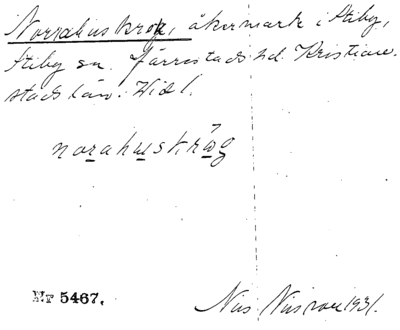 Norrahuskrok, åkermark i Stiby,
Stiby sn. Järrestads hd. Kristian-
stads län.
norahuskråg
Nr 5467.
Nils 1931.